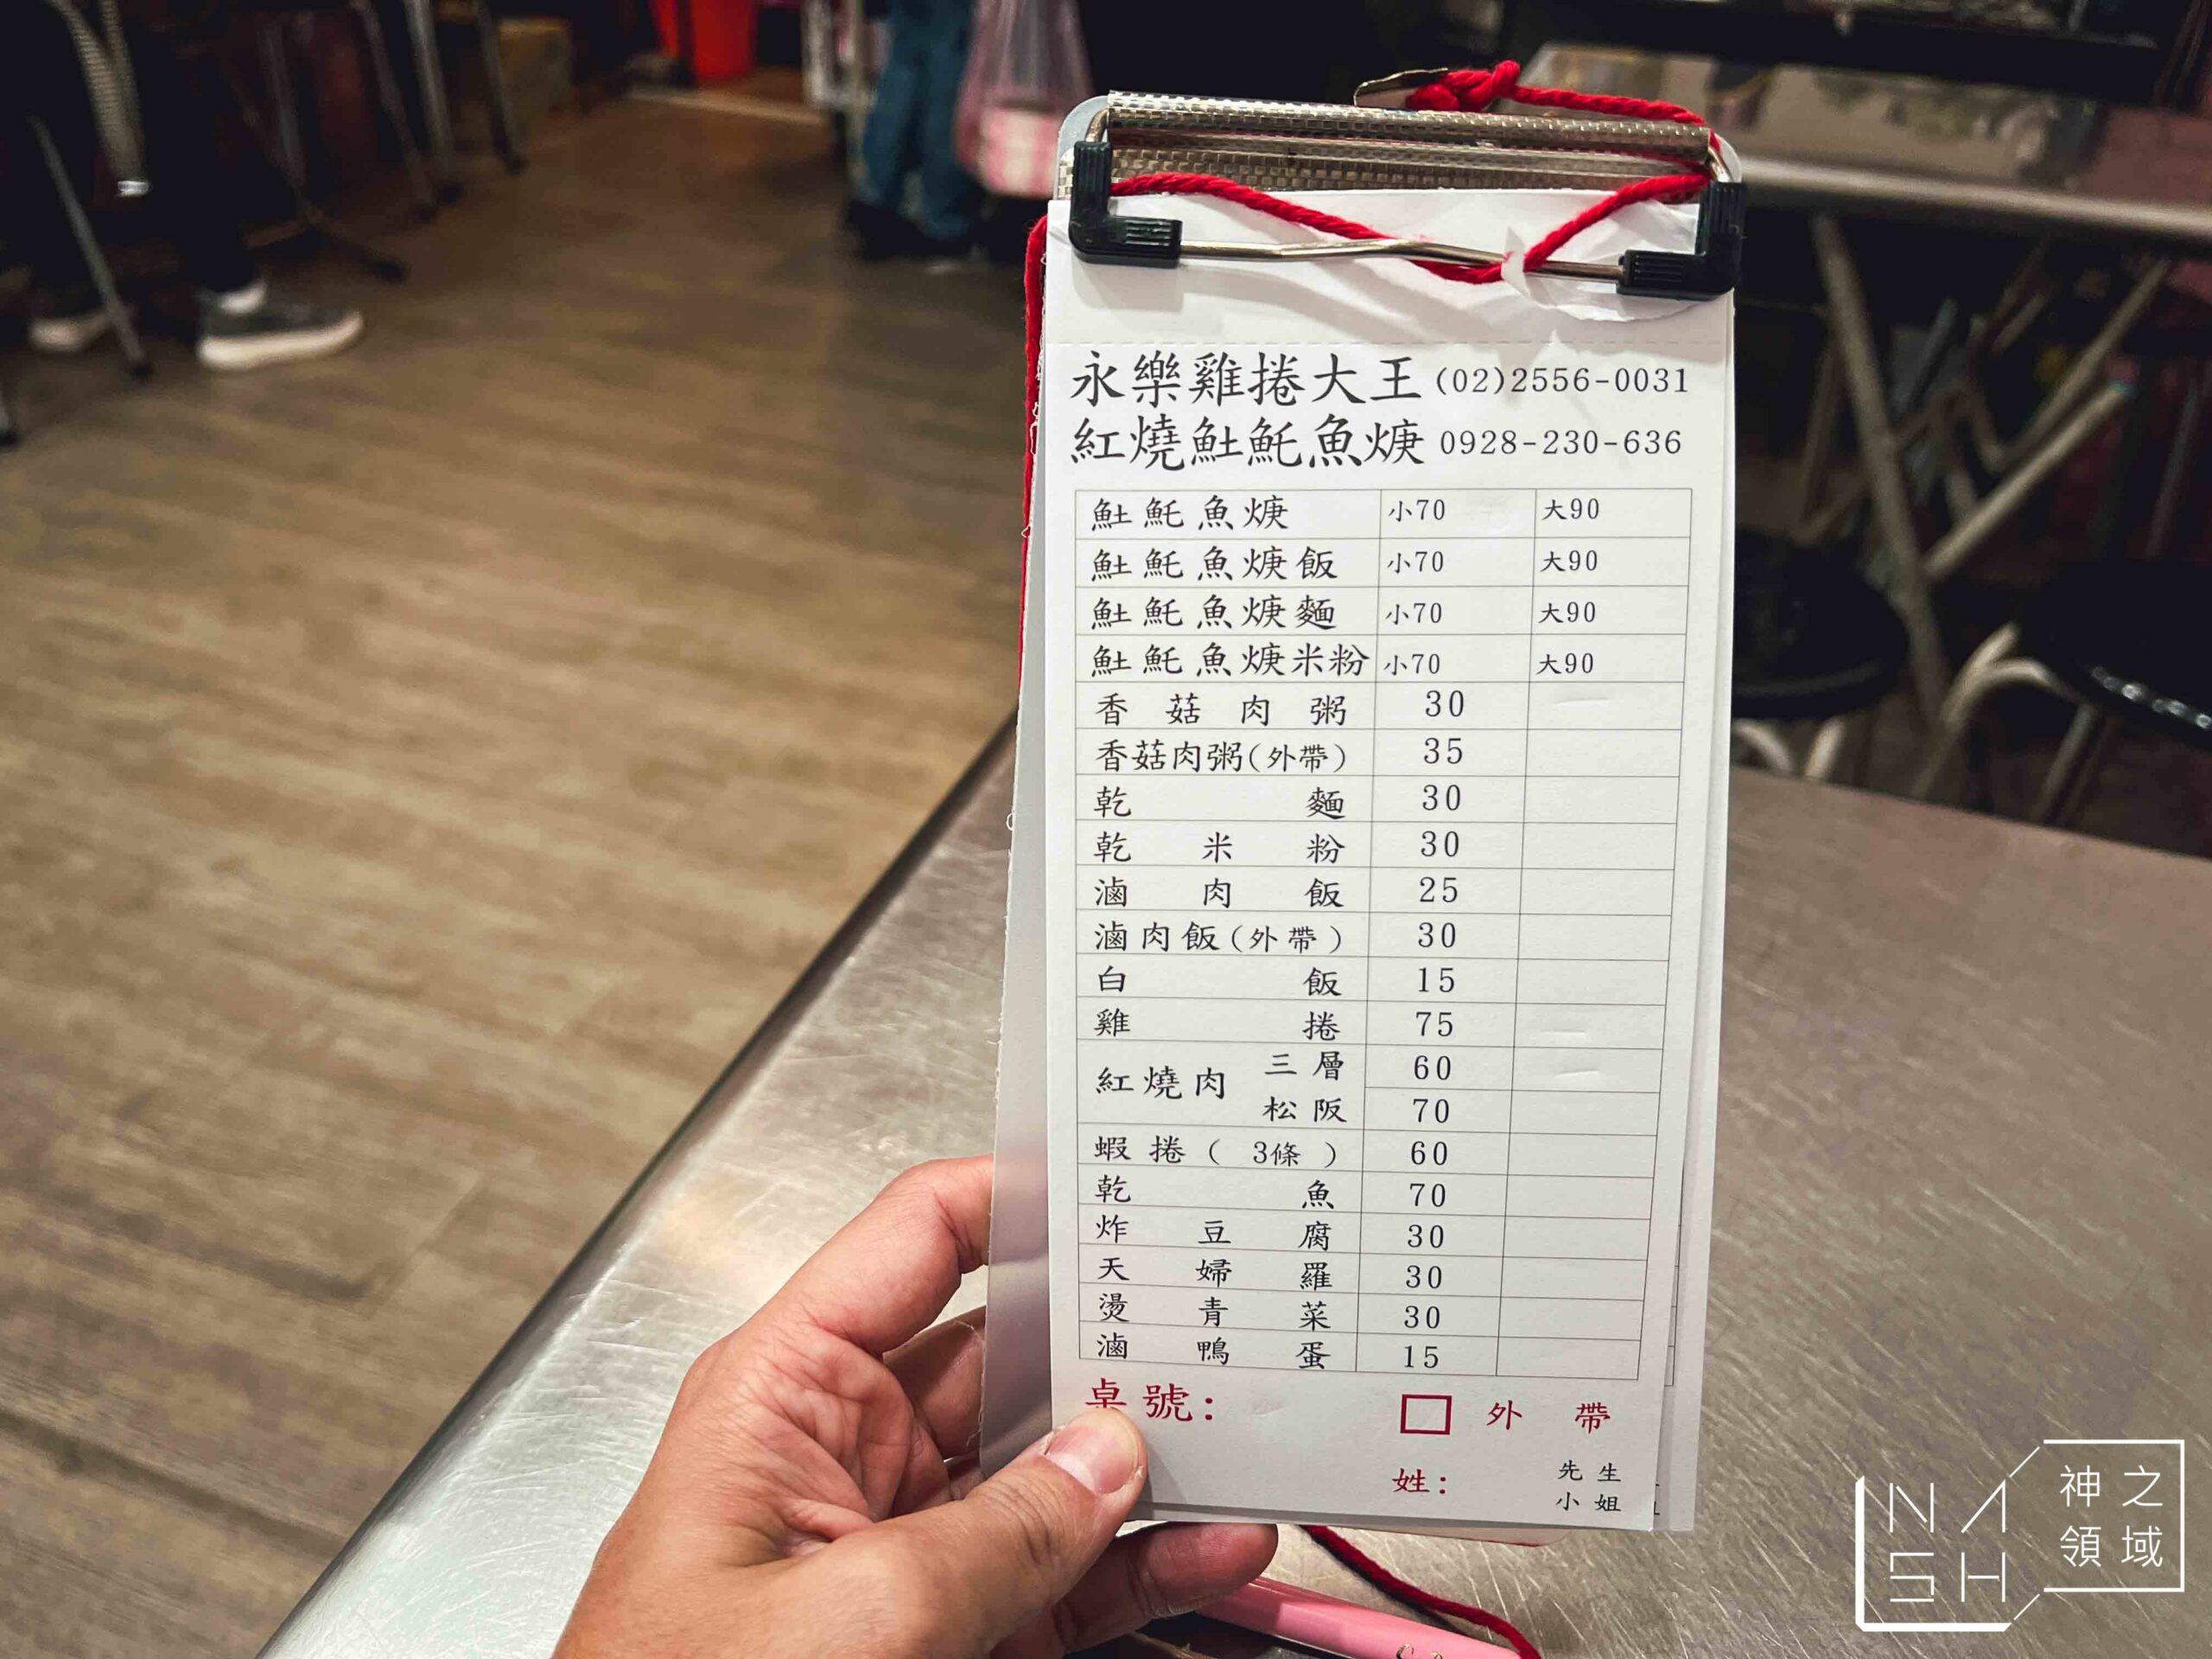 永樂雞捲大王(02)2556-0031
紅燒魠魠魚焿 0928-230-636
魠魠魚焿 小70 大90
魠魠魚焿飯 小70 大90
魠魠魚焿麵 小70 大90
魠魠魚焿米粉 小70 大90
香菇肉粥 30
香菇肉粥(外帶) 35
乾麵 30
乾米粉 30
滷肉飯 25
滷肉飯(外帶) 30
白飯 15
雞捲 75
紅燒肉 三層 60
松阪 70
蝦捲(3條) 60
乾魚 70
炸豆腐 30
天婦羅 30
燙青菜 30
滷鴨蛋 15
桌號:
外帶
姓: 先生
小姐
NASH
神之
領域